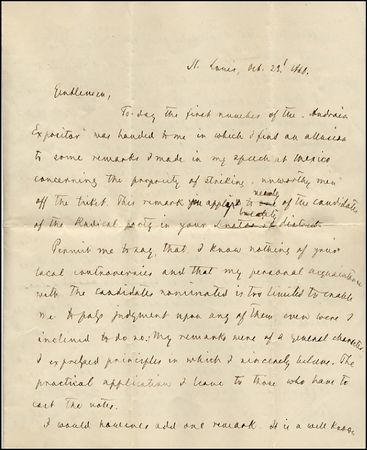 St. Louis, Oct. 23d 1868.
Gentlemen,
To day the first number of the "Audrain
Expositor" was handed to me in which I find an allusion
to some remarks I made in my speech at Mexico
concerning the propriety of striking "unworthy men"
off the ticket. This remark you applied to one of the candidates
nearly
of the Radical party in your district.
Permit me to say, that I know nothing of your
local controversies and that my personal acquaintance
with the candidates nominated is too limited to enable
me to pass judgment upon any of them even were I
inclined to do so. My remarks were of a general character.
I expressed principles in which I sincerely believe. The
practical application I leave to those who have to
cast the votes.
I would however add one remark. It is a well known